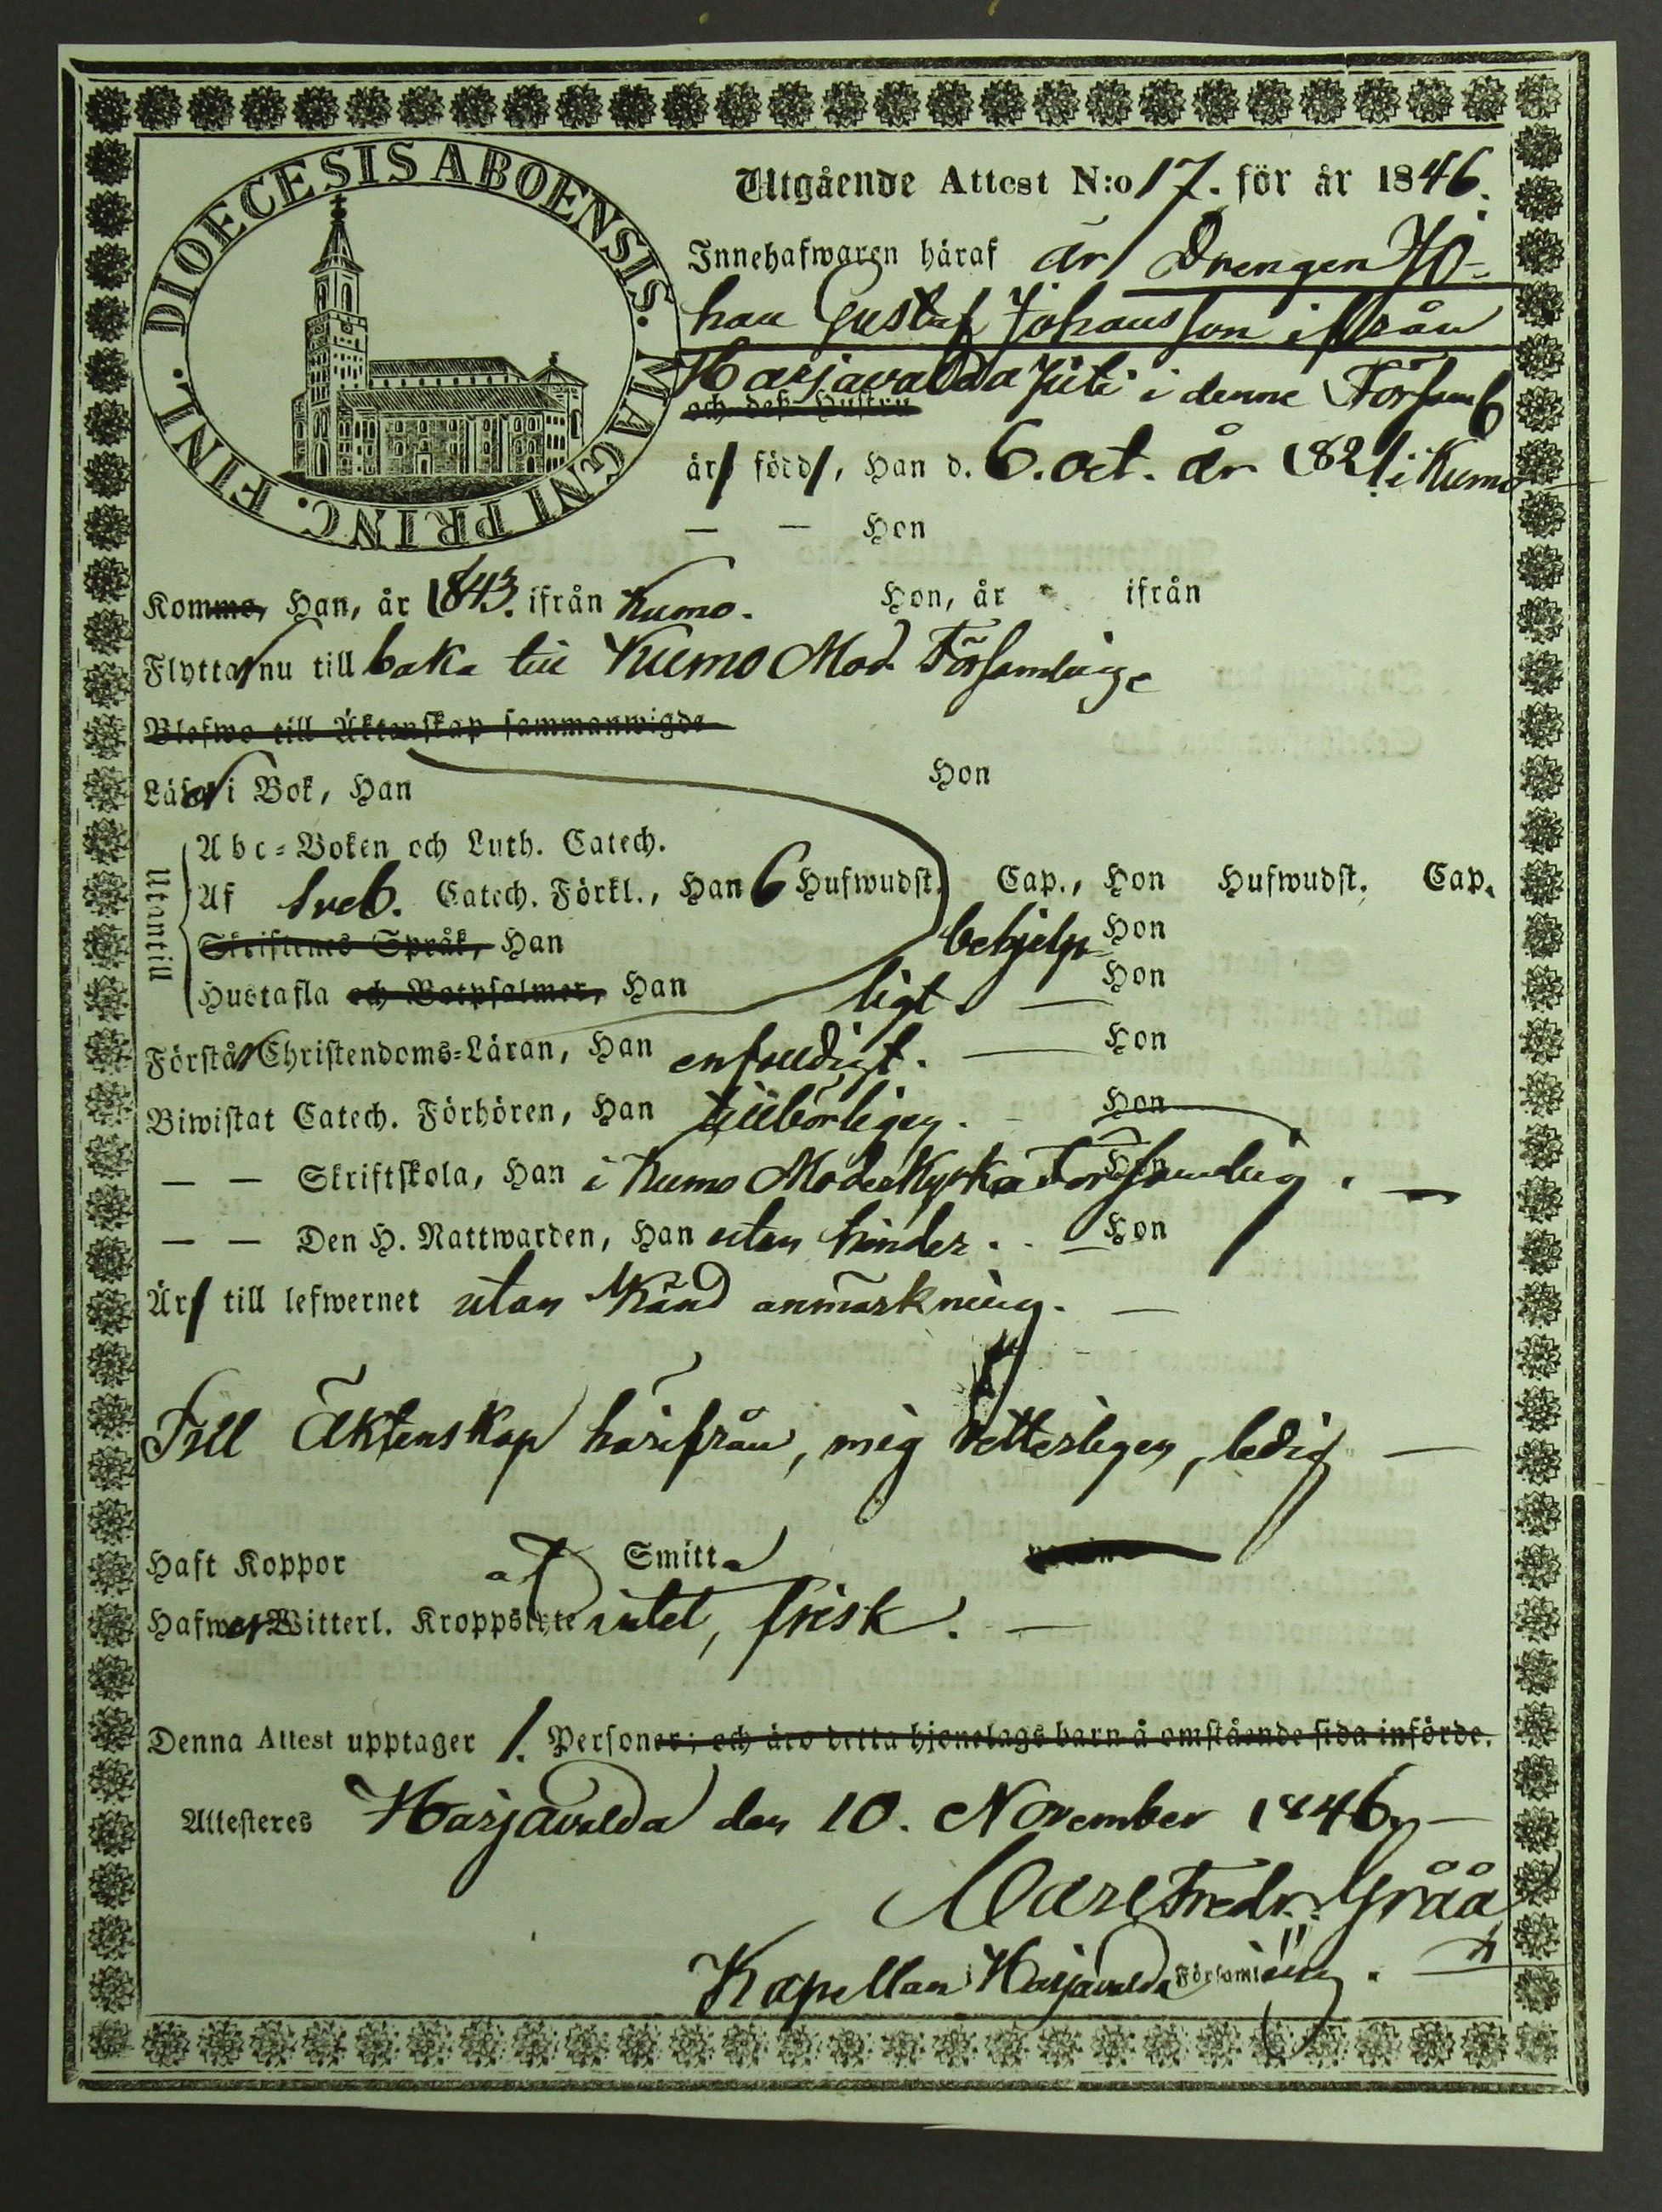 DIOECESIS ABOENSIS. MAGNI PRINC. FINL.
Utgående Attest N:o 17. för år 1846.
Innehafwaren häraf är Drengen Jo-
han Gustaf Johansson ifrån
Harjavalda i denne Församl
och deß Hustru
är född, Han d. 6. oct. år 1821 i Kumo
— — Hon
Komme, Han, år 1843. ifrån Kumo. Hon, år ifrån
Flyttar nu till baka till Kumo Mod. Församling
Blefwo till Äktenskap sammanwigde
Läser i Bok, Han Hon
Utantill
Abc-Boken och Luth. Catech.
Af Sveb. Catech. Förkl., Han 6 Hufwudst. Cap., Hon Hufwudst. Cap.
Skriftenes Språk, Han behjelp- Hon
Hustafla och Botpsalmer, Han ligt. — Hon
Förstår Christendoms-Läran, Han enfaldigt. — Hon
Biwistat Catech. Förhören, Han tillbörligen. Hon
— — Skriftskola, Han i Kumo Moderkyrka Församling. — Hon
— — Den H. Nattwarden, Han utan hinder. — Hon
Är till lefwernet utan känd anmärkning. —
Till Äktenskap härifrån, mig vetterligen, ledig —
Haft Koppor Smitta
Hafwer Witterl. Kroppslyte intet, frisk. —
Denna Attest upptager 1. Personer; och äro detta hjonelags barn å omstående sida införde.
Attesteres Harjavalda den 10. November 1846. —
Carl Fredr. Gråå
Kapellan i Harjavalda Församling.